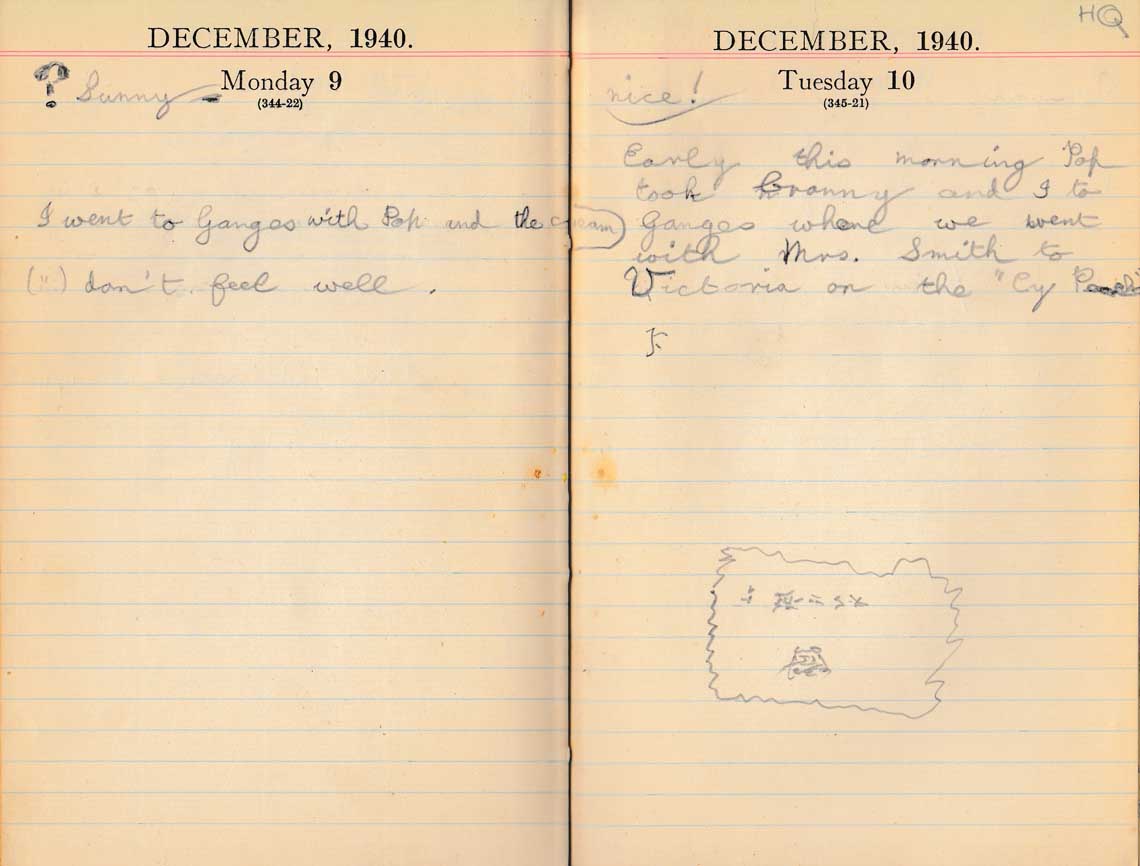 DECEMBER, 1940.
Monday 9
(344-22)
? Sunny
I went to Ganges with Pop and the cream
(") don't feel well.
HQ
DECEMBER, 1940.
Tuesday 10
(345-21)
nice!
Early this morning Pop
took Granny and I to
Ganges where we went
with Mrs. Smith to
Victoria on the "Cy Peck